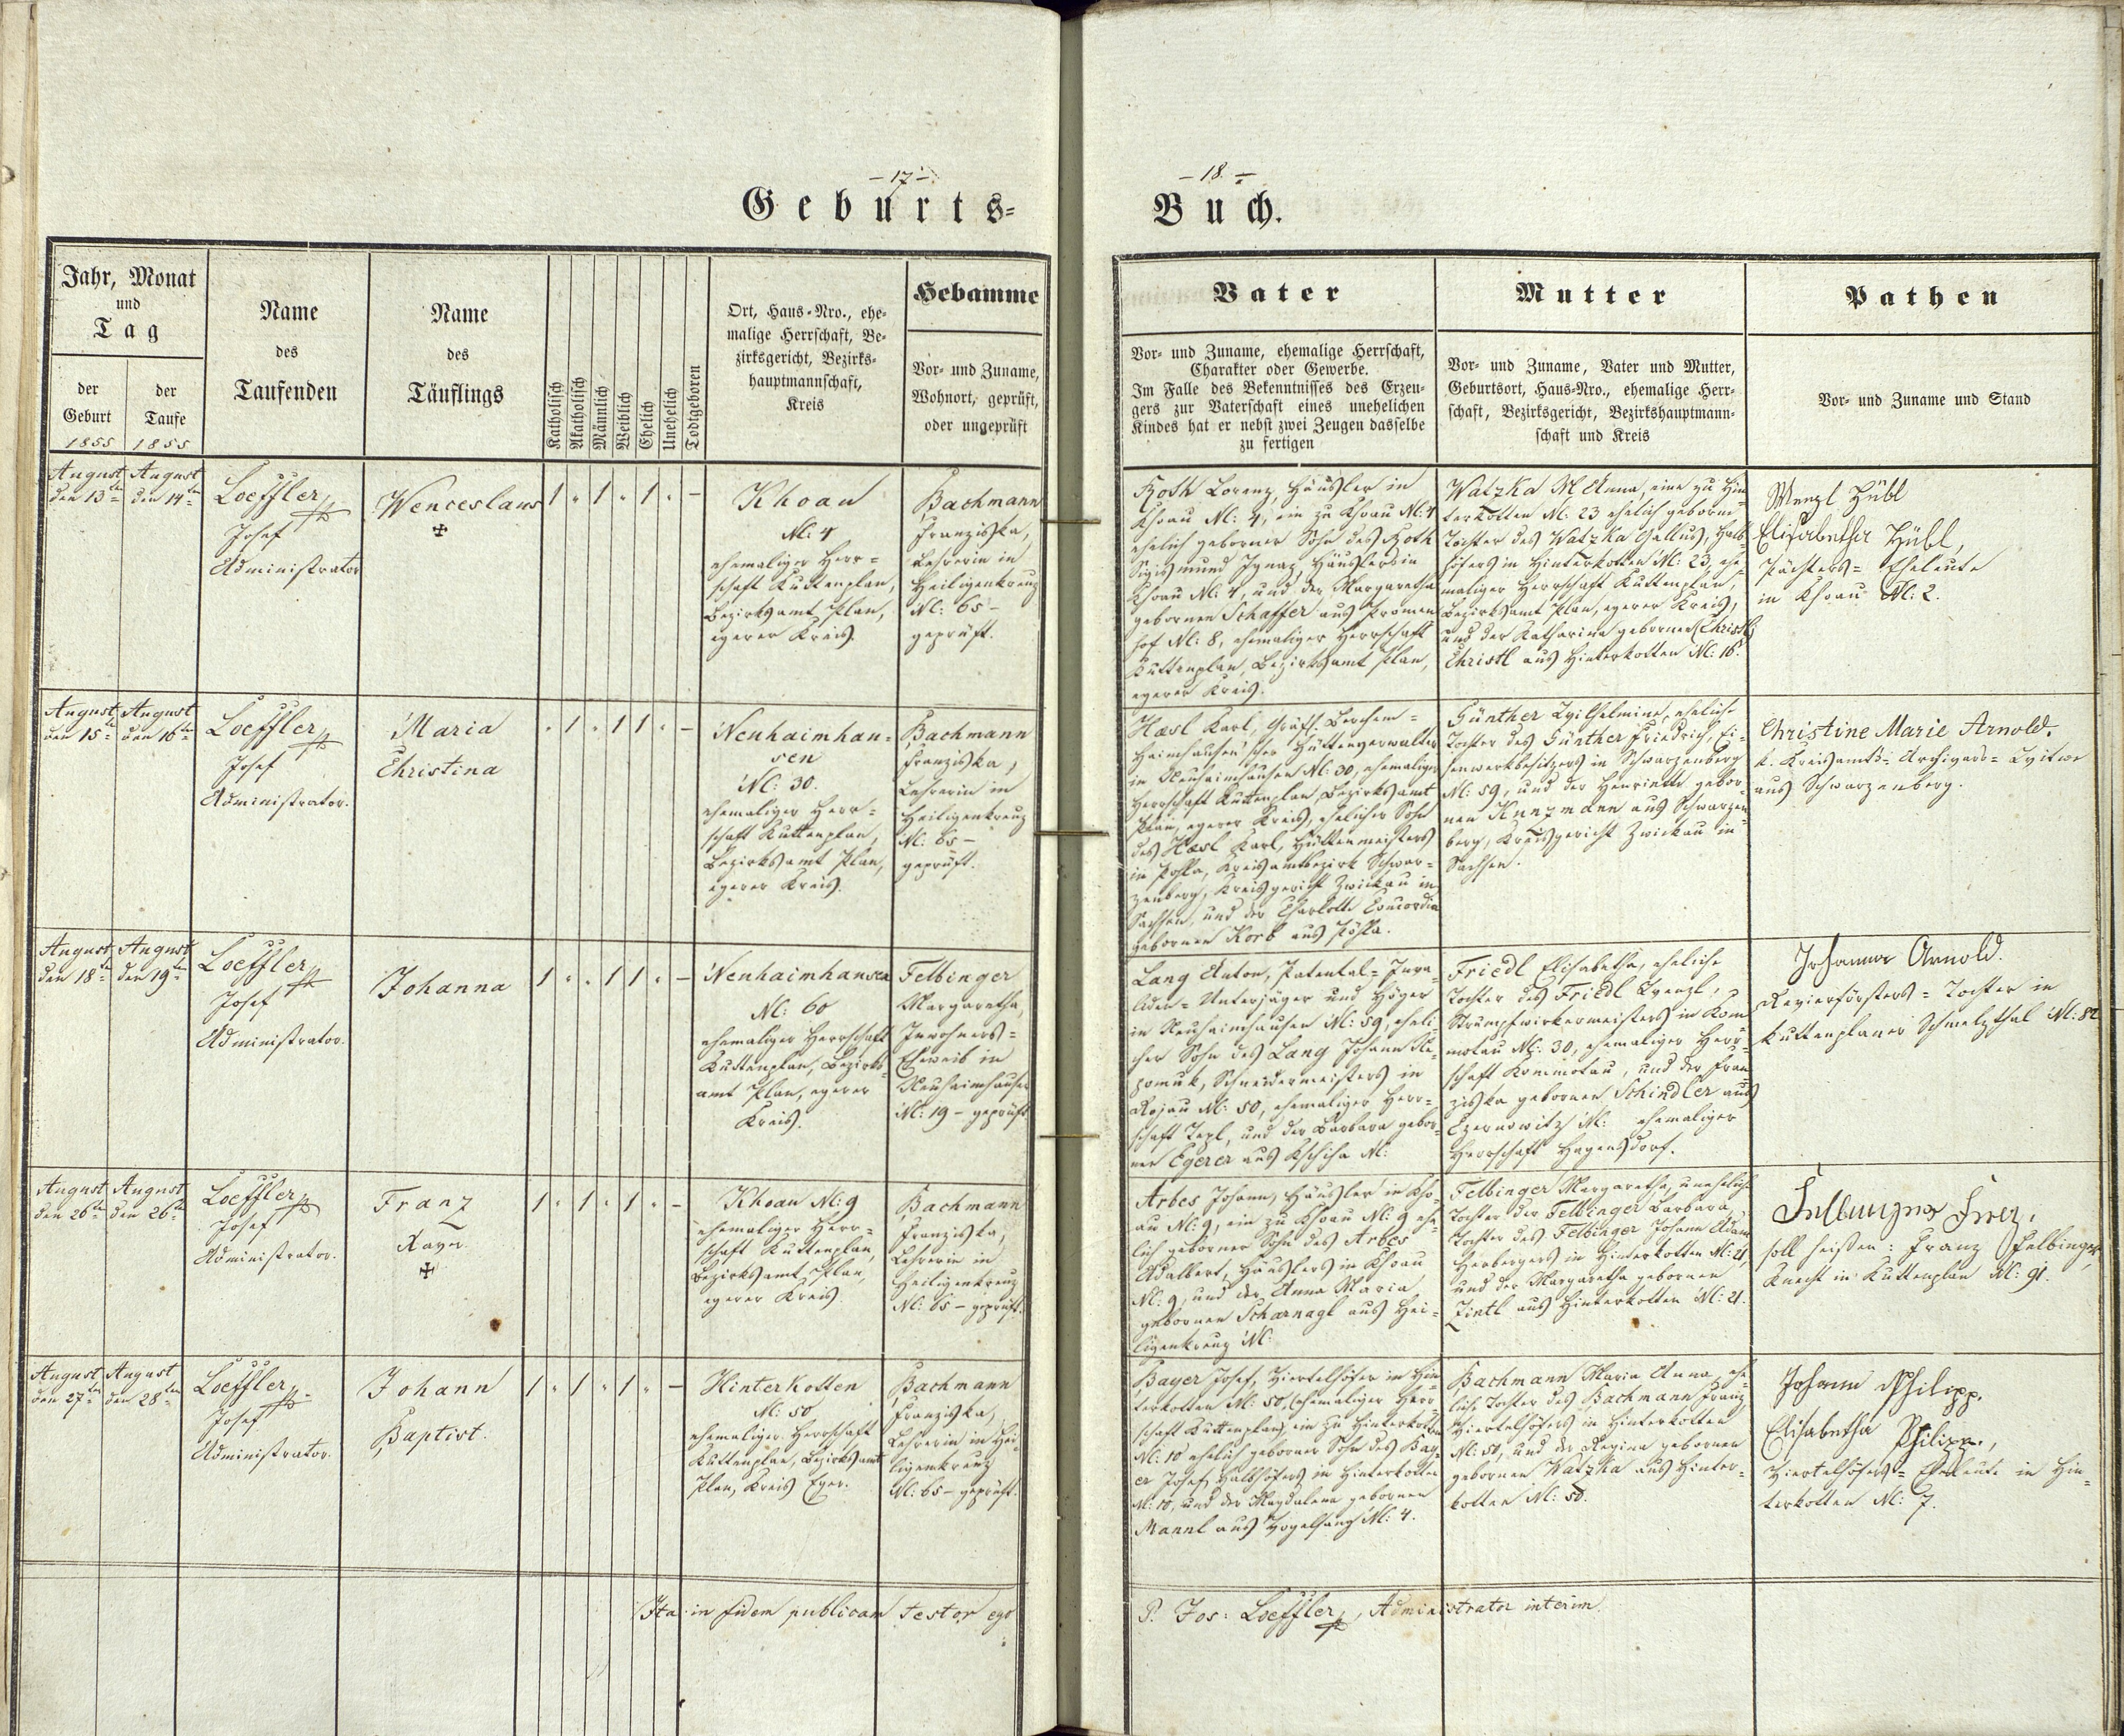 – 17 –
Geburts=
Jahr, Monat
und
Tag
der
Geburt
1855
der
Taufe
1855
Name
des
Taufenden
Name
des
Täuflings
Katholisch
Akatholisch
Männlich
Weiblich
Ehelich
Unehelich
Todtgeboren
Ort, Haus-Nro., ehe-
malige Herrschaft, Be-
zirksgericht, Bezirks-
hauptmannschaft,
Kreis
Hebamme
Vor- und Zuname,
Wohnort, geprüft,
oder ungeprüft
August
den 13ten
August
den 14ten
Loeffler
Josef
Administrator
Wenceslaus
✠
1 " 1 " 1 " –
Khoau
N: 4
ehemaliger Herr=
schaft Kuttenplan,
Bezirksamt Plan,
egerer Kreis.
Bachmann
Franziska,
Lehrerin in
Heiligenkreuz
N: 65 –
geprüft.
August
den 15ten
August
den 16ten
Loeffler
Josef
Administrator.
Maria
Christina
" 1 " 1 1 " –
Neuhaimhau=
sen
N: 30.
ehemaliger Herr=
schaft Kuttenplan,
Bezirksamt Plan,
egerer Kreis.
Bachmann
Franziska,
Lehrerin in
Heiligenkreuz
N: 65 –
geprüft.
August
den 18ten
August
den 19ten
Loeffler
Josef
Administrator.
Johanna
1 " " 1 1 " –
Neuhaimhausen
N: 60
ehemaliger Herrschaft
Kuttenplan, Bezirks=
amt Plan, egerer
Kreis.
Felbinger
Margaretha,
Inwohners=
Eheweib in
Neuhaimhausen
N: 19 – geprüft
August
den 26ten
August
den 26ten
Loeffler
Josef
Administrator.
Franz
Xaver
✠
1 " 1 " 1 " –
Khoau N: 9
ehemaliger Herr=
schaft Kuttenplan,
Bezirksamt Plan,
egerer Kreis.
Bachmann
Franziska,
Lehrerin in
Heiligenkreuz
N: 65 – geprüft.
August
den 27ten
August
den 28ten
Loeffler
Josef
Administrator.
Johann
Baptist.
1 " 1 " 1 " –
Hinterkotten
N: 50
ehemaliger Herrschaft
Kuttenplan, Bezirksamt
Plan, Kreis Eger.
Bachmann
Franziska,
Lehrerin in Hei=
ligenkreuz
N: 65 – geprüft.
Ita in fidem publicam testor ego
– 18. –
Buch.
Vater
Vor- und Zuname, ehemalige Herrschaft,
Charakter oder Gewerbe.
Im Falle des Bekenntnisses des Erzeu-
gers zur Vaterschaft eines unehelichen
Kindes hat er nebst zwei Zeugen dasselbe
zu fertigen
Mutter
Vor- und Zuname, Vater und Mutter,
Geburtsort, Haus-Nro., ehemalige Herr-
schaft, Bezirksgericht, Bezirkshauptmann-
schaft und Kreis
Pathen
Vor- und Zuname und Stand
Roth Lorenz, Häusler in
Khoau N: 4, ein zu Khoau N: 4
ehelich geborner Sohn des Roth
Sigismund Ignaz, Häuslers in
Khoau N: 4, und der Margaretha
gebornen Schaffer aus Promen
hof N: 8, ehemaliger Herrschaft
Kuttenplan, Bezirksamt Plan,
egerer Kreis.
Watzka M Anna, eine zu Hin=
terkotten N: 23 ehelich geborne
Tochter des Watzka Gallus, Halb=
höfers in Hinterkotten N: 23, ehe=
maliger Herrschaft Kuttenplan,
Bezirksamt Plan, egerer Kreis,
und der Katharina gebornen (Christl)
Christl aus Hinterkotten N: 16.
Wenzl Hübl
Elisabetha Hübl,
Pächters= Eheleute
in Khoau N: 2.
Hæsl Karl, Gräfl. Berchem=
Haimhausen'scher Hüttenverwalter
in Neuhaimhausen N: 30, ehemaliger
Herrschaft Kuttenplan, Bezirksamt
Plan, egerer Kreis, ehelicher Sohn
des Hæsl Karl, Hüttenmeisters
in Pöhla, Kreisamtbezirk Schwar=
zenberg, Kreisgericht Zwickau in
Sachsen, und der Charlotte Concordia
gebornen Korb aus Pöhla.
Günther Wilhelmine, eheliche
Tochter des Günther Friedrich, Ei=
senwerkbesitzers in Schwarzenberg
N: 59, und der Henriette gebor=
nen Kunzmann aus Schwarzen
berg, Kreisgericht Zwickau in
Sachsen.
Christine Marie Arnold.
k. Kreisamts= Archivars= Witwe
aus Schwarzenberg.
Lang Anton, Patental= Inva=
liden= Unterjäger und Heger
in Neuhaimhausen N: 59, eheli=
cher Sohn des Lang Johann Ne=
pomuk, Schneidermeisters in
Rojau N: 50, ehemaliger Herr=
schaft Tepl, und der Barbara gebor=
nen Egerer aus Kschiha N:
Friedl Elisabetha, eheliche
Tochter des Friedl Wenzl,
Strumpfwirkermeisters in Kom
motau N: 30, ehemaliger Herr=
schaft Kommotau, und der Fran
ziska gebornen Schindler aus
Czernowitz N: ehemaliger
Herrschaft Hagensdorf.
Johanna Arnold.
Revierförsters= Tochter in
Kuttenplaner Schmelzthal N: 82
Arbes Johann, Häusler in Kho=
au N: 9, ein zu Khoau N: 9 ehe=
lich geborner Sohn des Arbes
Adalbert, Häuslers in Khoau
N: 9, und der Anna Maria
gebornen Scharnagl aus Hei=
ligenkreuz N:
Felbinger Margaretha, uneheliche
Tochter der Felbinger Barbara,
Tochter des Felbinger Johann Adam
Herbergers in Hinterkotten N: 21,
und der Margaretha gebornen
Zintl aus Hinterkotten N: 21.
soll heißen: Franz Felbinger,
Knecht in Kuttenplan N: 91.
Bayer Josef, Viertelhöfer in Hin=
terkotten N: 50, (ehemaliger Herr=
schaft Kuttenplan) ein zu Hinterkotten
N: 10 ehelich geborner Sohn des Bay=
er Josef, Halbhöfers in Hinterkotten
N: 10, und der Magdalena gebornen
Mannl aus Vogelsang N: 4.
Bachmann Maria Anna, ehe=
liche Tochter des Bachmann Franz
Viertelhöfers in Hinterkotten
N: 50, und der Regina gebornen
gebornen Watzka aus Hinter=
kotten N: 58.
Johann Philipp.
Elisabetha Philipp.,
Viertelhöfers= Eheleute in Hin=
terkotten N: 7.
P. Jos: Loeffler, Administrator interim.